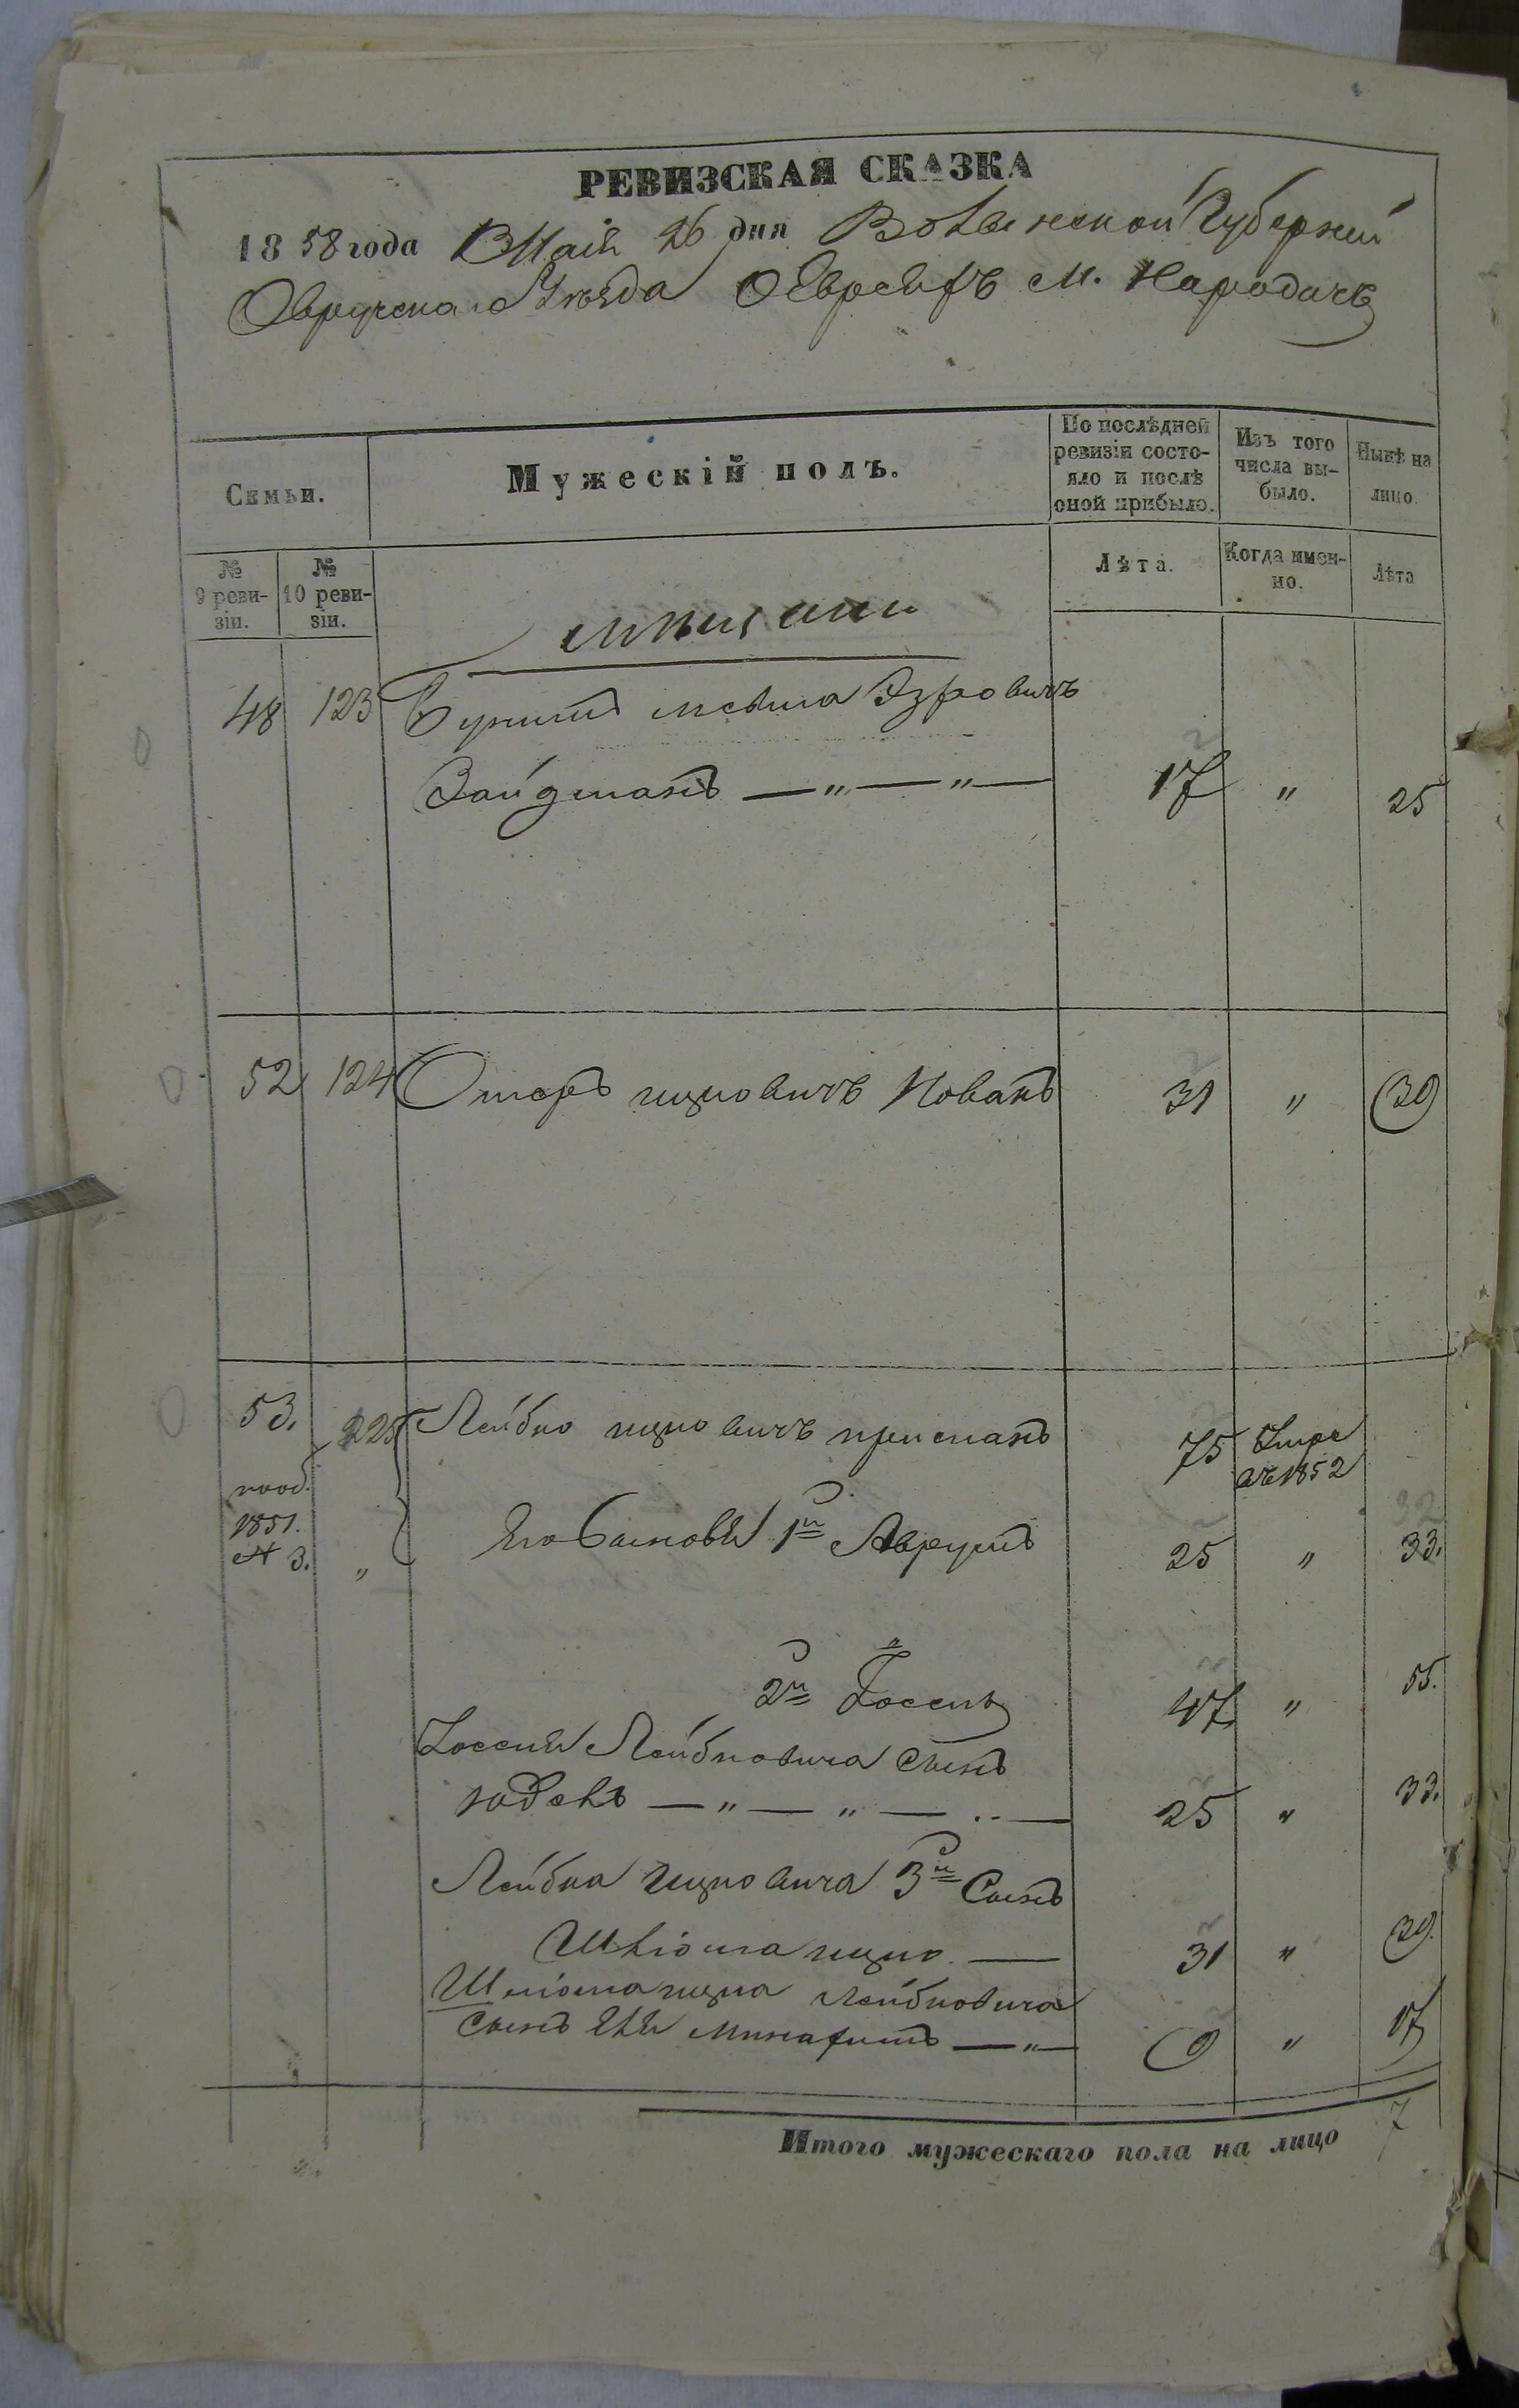 РЕВИЗСКАЯ СКАЗКА
1858 года Маія 26 дня Волынской Губерніи
Овручскаго Уѣзда О Евреяхъ м. Народичъ
Семьи.
Мужескій полъ.
По послѣдней ревизіи состояло и послѣ оной прибыло.
Изъ того числа выбыло.
Нынѣ на лицо.
№ 9 ревизіи.
№ 10 ревизіи.
Лѣта.
Когда именно.
Лѣта
Мѣщане
48 123 Берковичъ
Зайдманъ — „ — „ — 17 „ 25
52 124 Ошеръ Ицковичъ Новакъ 31 „ 39
53. 125 Лейбко Ицковичъ 75 Умре
въ 1852
1851.
№ 3. „ Его Сыновья 1й Аврумъ 25 „ 33.
2й Іоссель 47 „ 55.
Іосселя Лейбковича Сынъ
— „ — „ — „ — 25 „ 33.
Лейбка Ицковича 3й Сынъ
Шліома Ицко — 31 „ 39.
Шліома Ицка Лейбковича
Сынъ — „ — 9 „ 17
Итого мужескаго пола на лицо 7